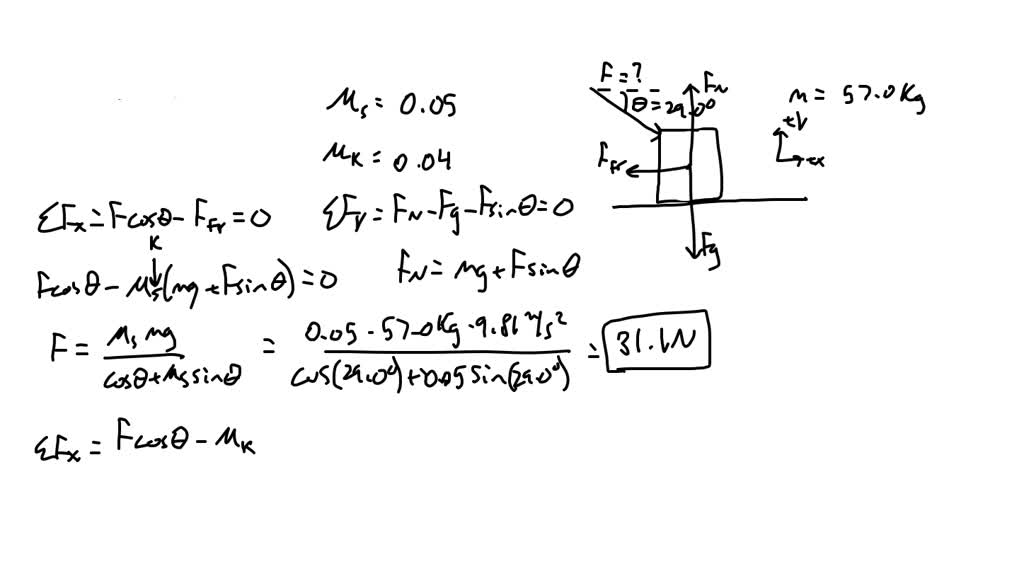 μs = 0.05
μK = 0.04
F = ?
θ = 29.0°
FN
m = 57.0 Kg
+y
+x
Ffr
Fg
ΣFx = Fcosθ - Ffr = 0
ΣFy = FN - Fg - Fsinθ = 0
K
Fcosθ - μs(mg + Fsinθ) = 0
FN = mg + Fsinθ
F = μs mg / cosθ + μs sinθ = 0.05 · 57.0 Kg · 9.81 m/s² / cos(29.0°) + 0.05 sin(29.0°) = 31.1N
ΣFx = Fcosθ - μK